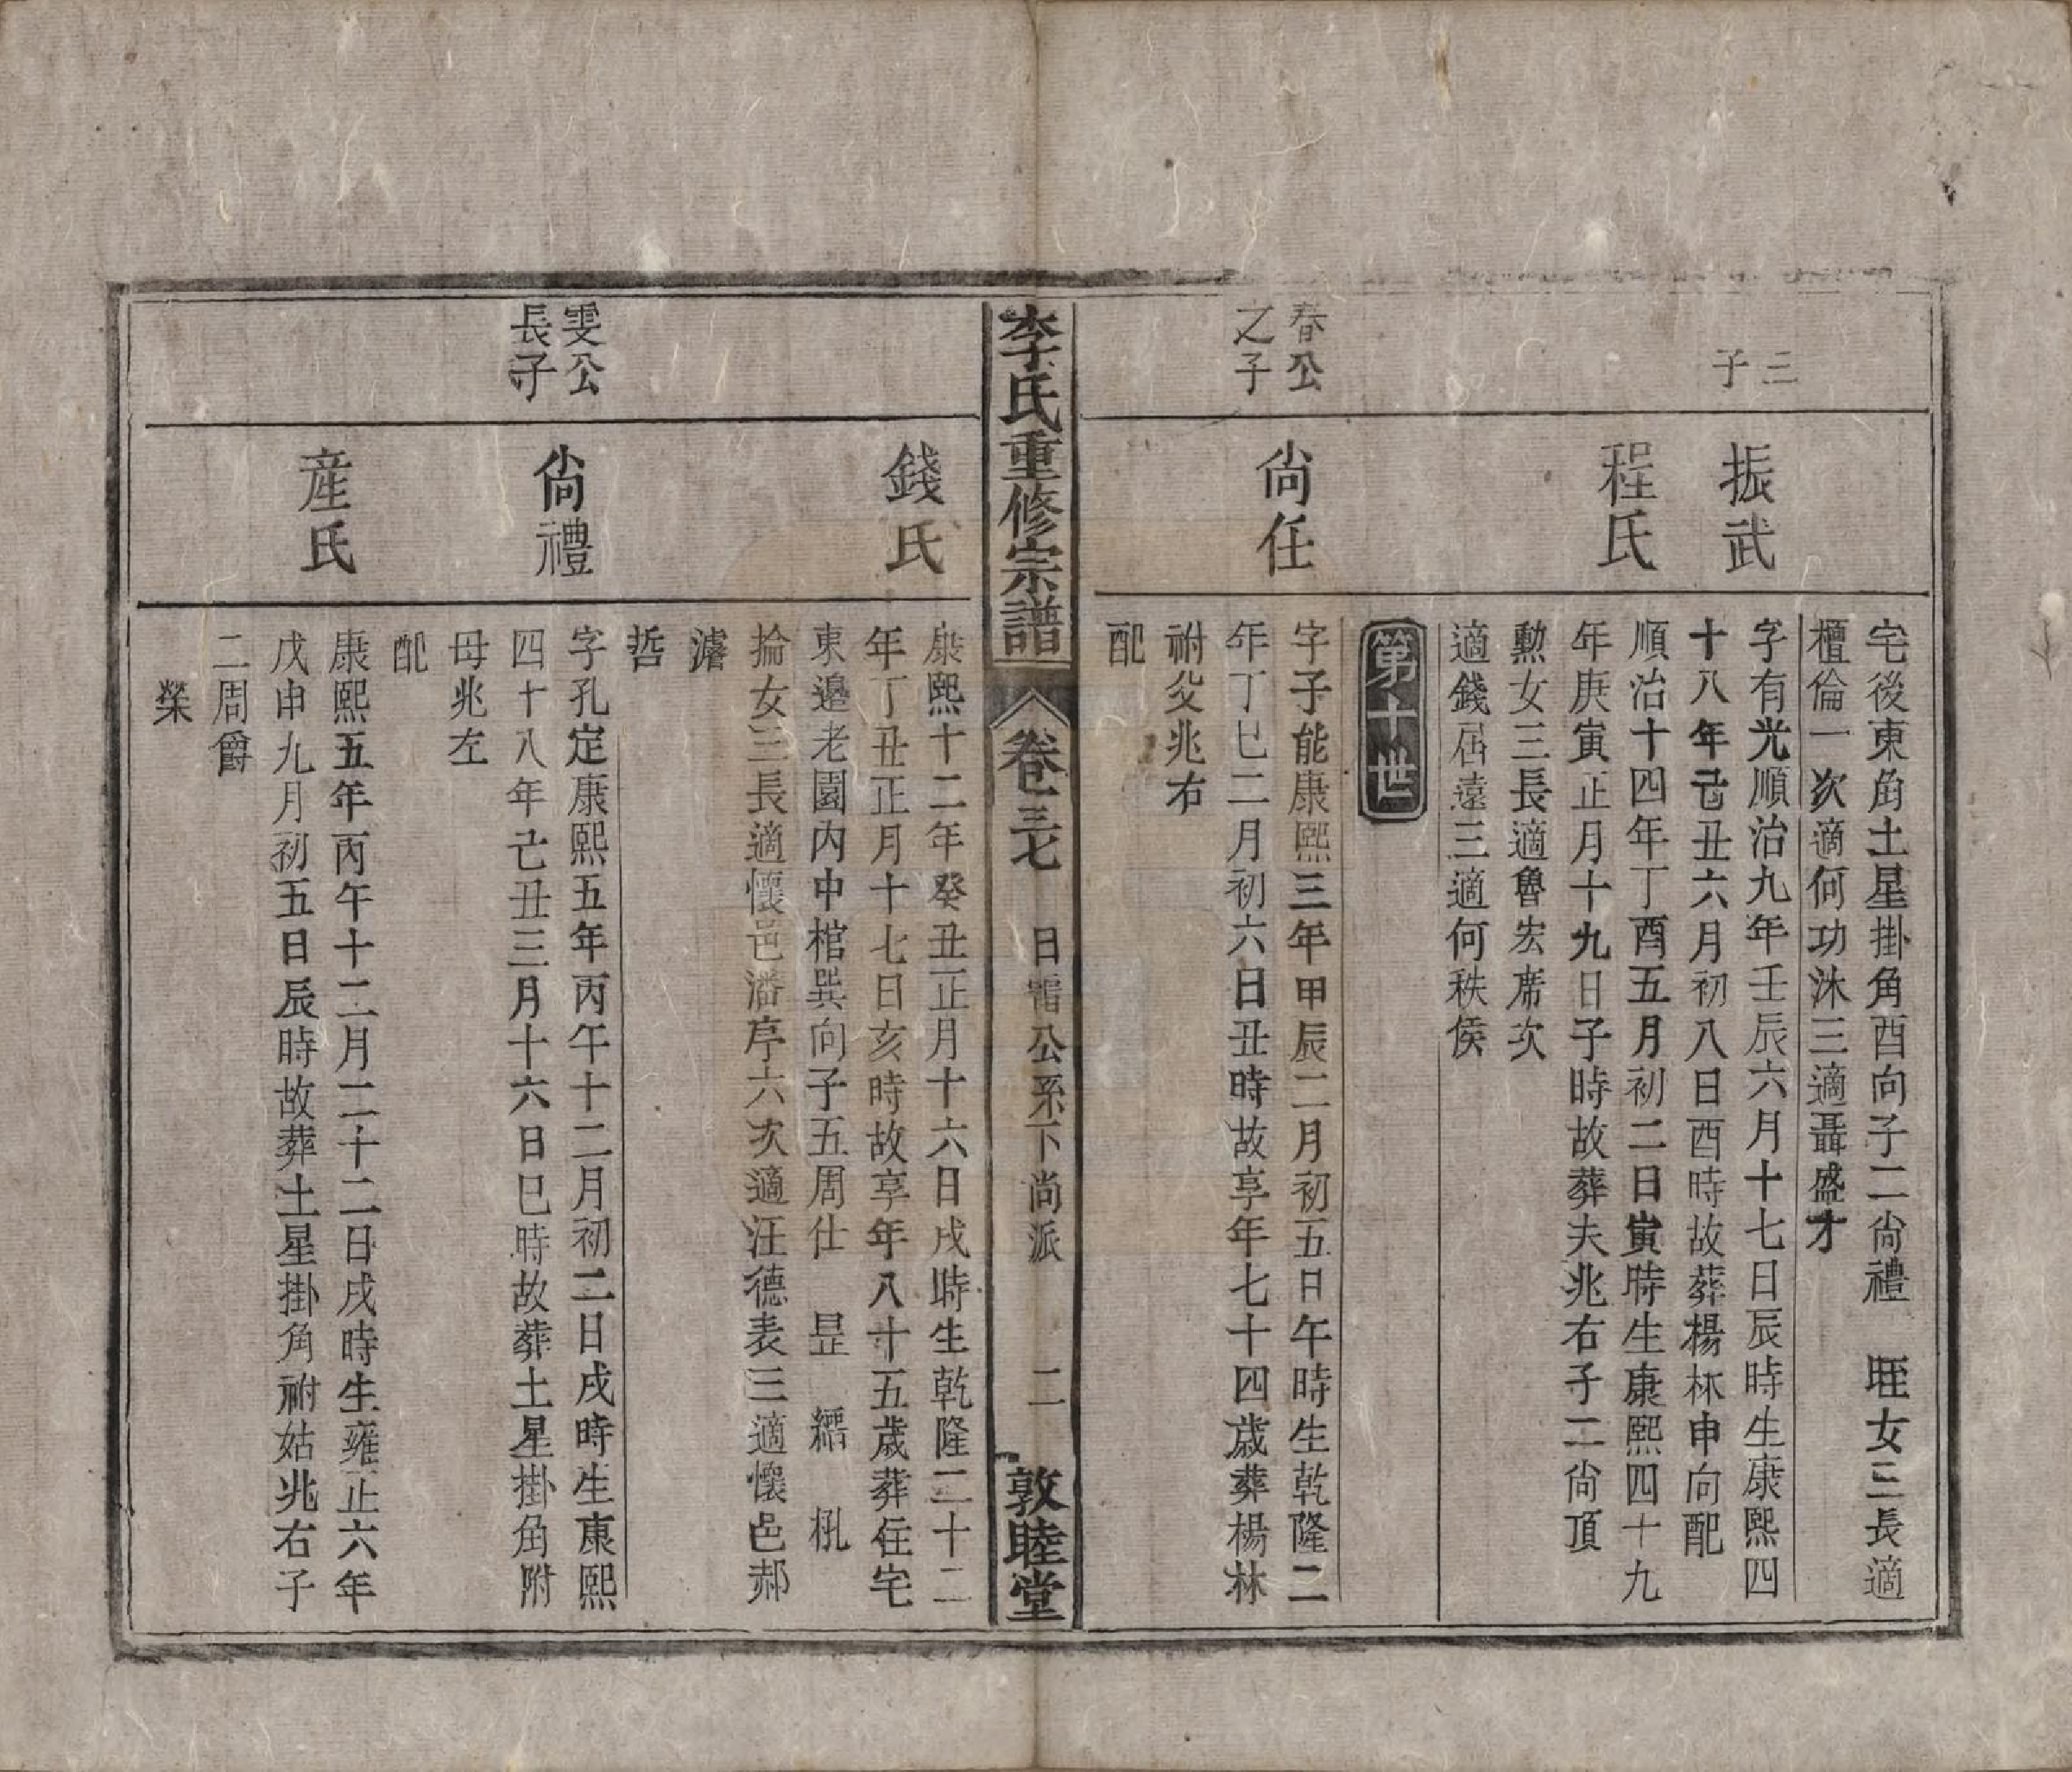 三
子
振武
程氏
宅後東角土星掛角酉向子二尙禮　旺女三長適
檀倫一次適何功沐三適聶盛才
字有光順治九年壬辰六月十七日辰時生康熙四
十八年己丑六月初八日酉時故葬楊林申向配
順治十四年丁酉五月初二日寅時生康熙四十九
年庚寅正月十九日子時故葬夫兆右子二尙頂
勳女三長適魯宏席次
適錢居遠三適何秩侯
第十世
春公
之子
尙任
字子能康熙三年甲辰二月初五日午時生乾隆二
年丁巳二月初六日丑時故享年七十四歲葬楊林
祔父兆右
配
李氏重修宗譜
卷三七
日公系下尚派
二
敦睦堂
錢氏
康熙十二年癸丑正月十六日戌時生乾隆二十二
年丁丑正月十七日亥時故享年八十五歲葬住宅
東邊老園內中棺巽向子五周仕　昰　縉　杋
掄女三長適懷邑潘序六次適汪德表三適懷邑郝
濬
哲
雯公
長子
尙禮
字孔定康熙五年丙午十二月初二日戌時生康熙
四十八年己丑三月十六日巳時故葬土星掛角附
母兆左
配
産氏
康熙五年丙午十二月二十二日戌時生雍正六年
戊申九月初五日辰時故葬土星掛角祔姑兆右子
二周爵
榮